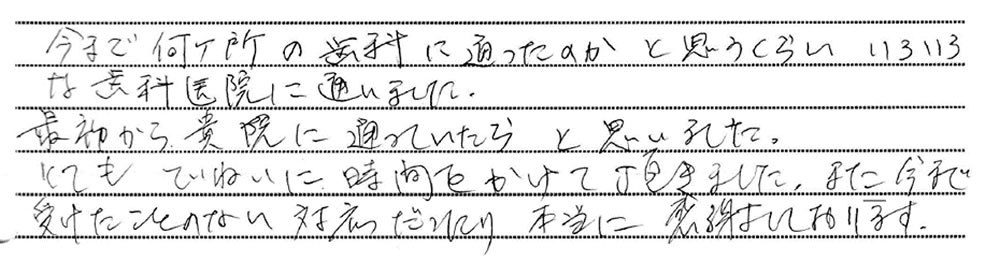 今まで何ヶ所の歯科に通ったのかと思うくらいいろいろ
な歯科医院に通いました。
最初から貴院に通っていたらと思いました。
とてもていねいに時間をかけて頂きました。また今まで
受けたことのない対応だったり本当に感謝しております。